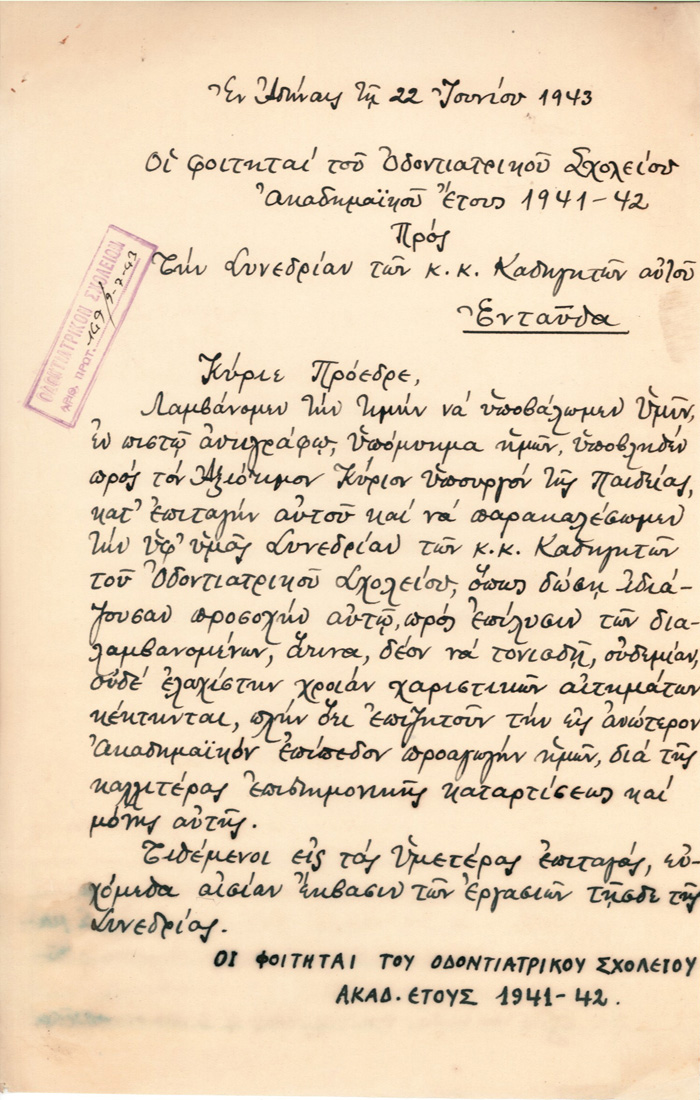 Ἐν Ἀθήναις τῇ 22 Ἰουνίου 1943
Οἱ φοιτηταί τοῦ Ὀδοντιατρικοῦ Σχολείου
Ἀκαδημαϊκοῦ Ἔτους 1941-42
Πρός
Τήν Συνεδρίαν τῶν κ.κ. Καθηγητῶν αὐτοῦ
Ἐνταῦθα
ΟΔΟΝΤΙΑΤΡΙΚΟΝ ΣΧΟΛΕΙΟΝ
ΑΡΙΘ. ΠΡΩΤ. 149/9-7-43
Κύριε Πρόεδρε,
Λαμβάνομεν τήν τιμήν νά ὑποβάλωμεν ὑμῖν,
ἐν πιστῷ ἀντιγράφῳ, ὑπόμνημα ἡμῶν, ὑποβληθέν
πρός τόν Ἀξιότιμον Κύριον Ὑπουργόν τῆς Παιδείας,
κατ' ἐπιταγήν αὐτοῦ καί νά παρακαλέσωμεν
τήν ὑφ' ὑμᾶς Συνεδρίαν τῶν κ.κ. Καθηγητῶν
τοῦ Ὀδοντιατρικοῦ Σχολείου, ὅπως δώσῃ ἰδιά-
ζουσαν προσοχήν αὐτῷ, πρός ἐπίλυσιν τῶν δια-
λαμβανομένων, ἅτινα, δέον νά τονισθῇ, οὐδεμίαν,
οὐδέ ἐλαχίστην χροιάν χαριστικῶν αἰτημάτων
κέκτηνται, πλήν ὅτι ἐπιζητοῦν τήν εἰς ἀνώτερον
Ἀκαδημαϊκόν ἐπίπεδον προαγωγήν ἡμῶν, διά τῆς
καλλιτέρας ἐπιστημονικῆς καταρτίσεως καί
μόνης αὐτῆς.
Τιθέμενοι εἰς τάς ὑμετέρας ἐπιταγάς, εὐ-
χόμεθα αἰσίαν ἔκβασιν τῶν ἐργασιῶν τῆσδε τῆς
Συνεδρίας.
ΟΙ ΦΟΙΤΗΤΑΙ ΤΟΥ ΟΔΟΝΤΙΑΤΡΙΚΟΥ ΣΧΟΛΕΙΟΥ
ΑΚΑΔ. ΕΤΟΥΣ 1941-42.